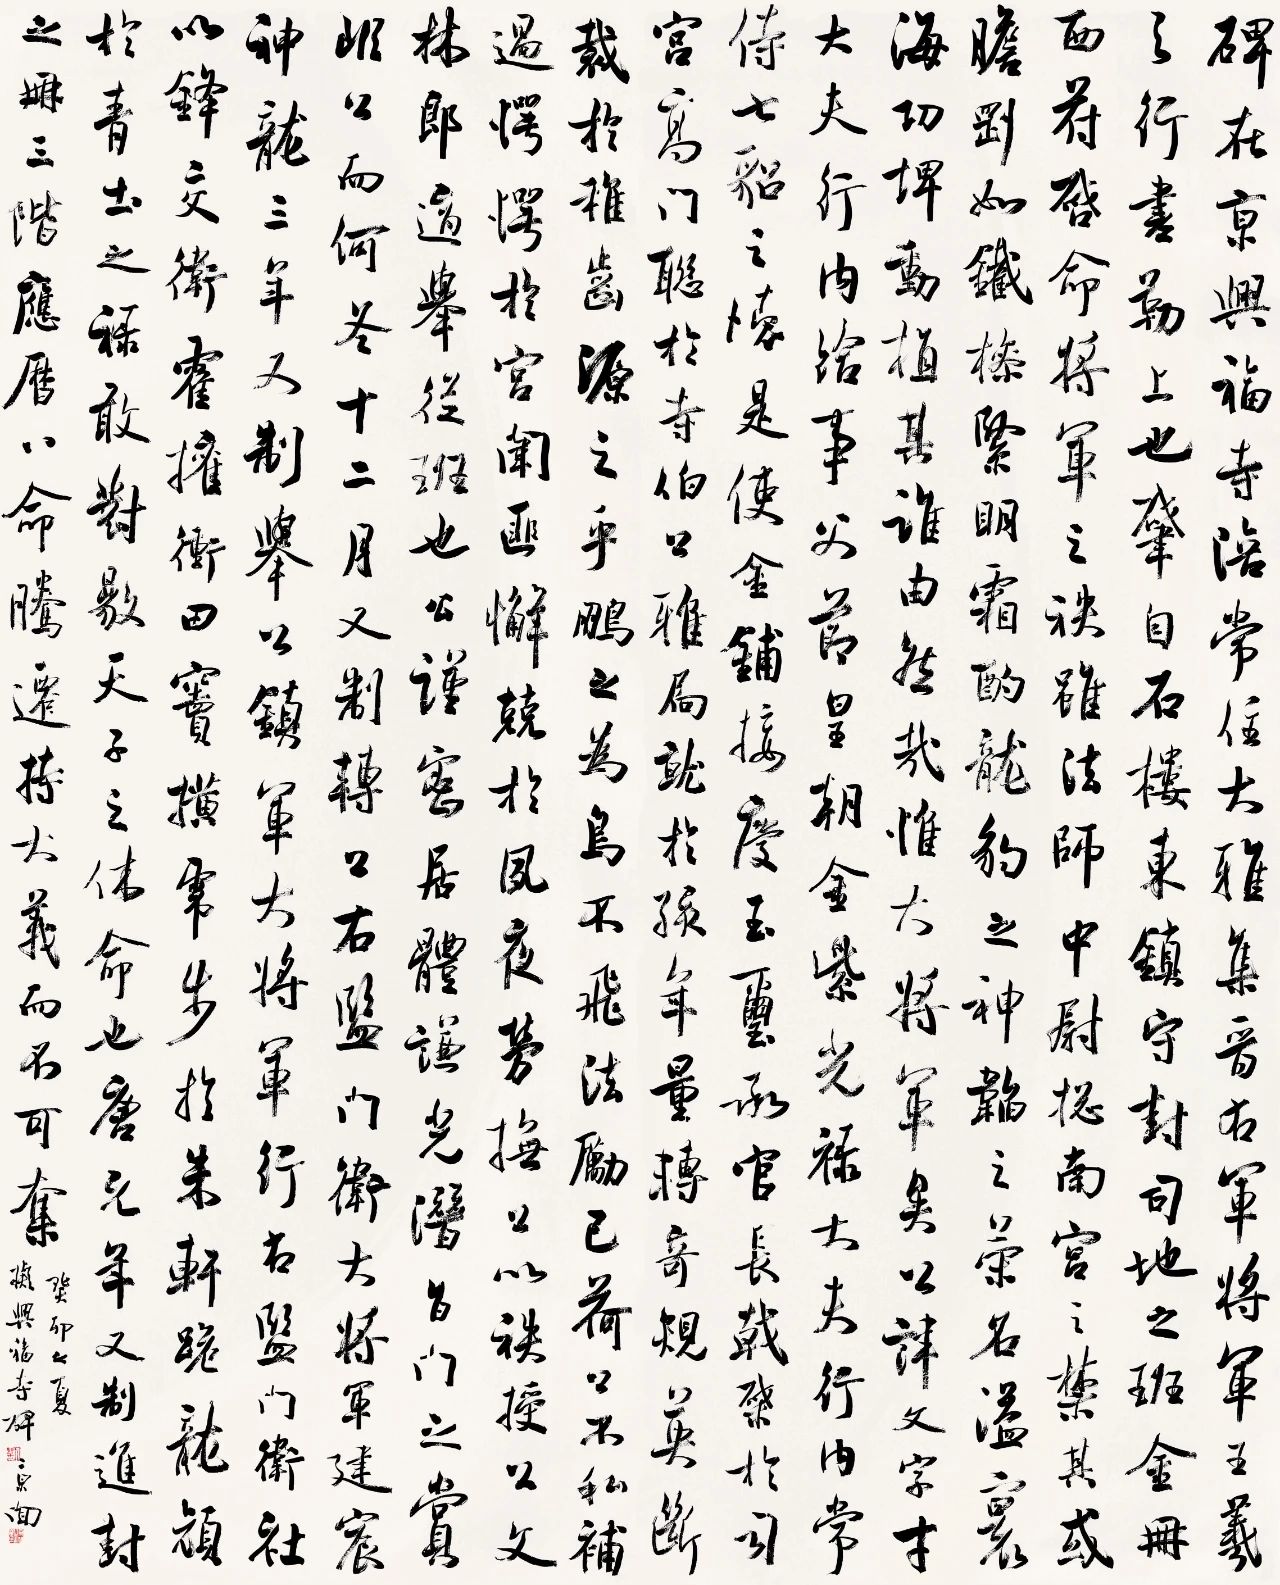 碑在京興福寺陪常住大雅集晉右軍將軍王羲
之行書勒上也肇自石樓東鎮守封司地之班金冊
西符啓命將軍之秩雖法師中尉總南宮之禁其或
膽劉如鐵操緊明霜酌龍豹之神韜之榮名溢寰
海功埤動植其誰由然哉惟大將軍矣公諱文字才
大夫行內給事父節皇朝金紫光祿大夫行內常
侍七貂之懷是使金鋪接慶玉璽承官長戟榮於司
宮高門聰於寺伯公雅局就於孩年量轉奇規英斷
裁於稚齒源之乎鵬之為鳥不飛法勵已荷公不私補
過愕愕於宮闈匪懈兢於夙夜勞撫公以秩授公文
林郎適舉從班也公謹密居體謙光潛旨門之賞
歸公而何冬十二月又制轉公右監門衛大將軍建宸
神龍三年又制舉公鎮軍大將軍行右監門衛社
以鋒交衛霍擁衝田竇橫虎步於朱軒跪龍顏
於青土之祿敢對敭天子之休命也唐元年又制進封
之冊三階應曆八命騰遷持大義而不可奪
癸卯之夏
擬興福寺碑